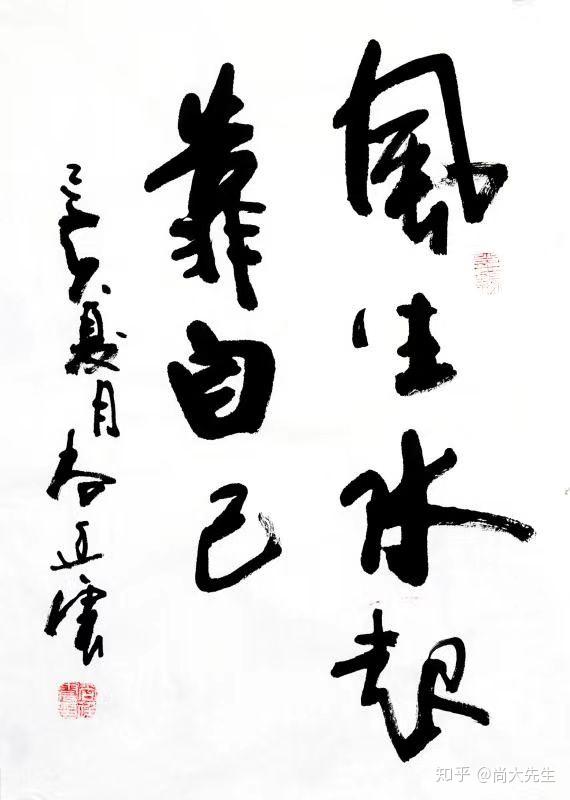 風生水起
靠自己
己亥夏月
知乎 @尚大先生